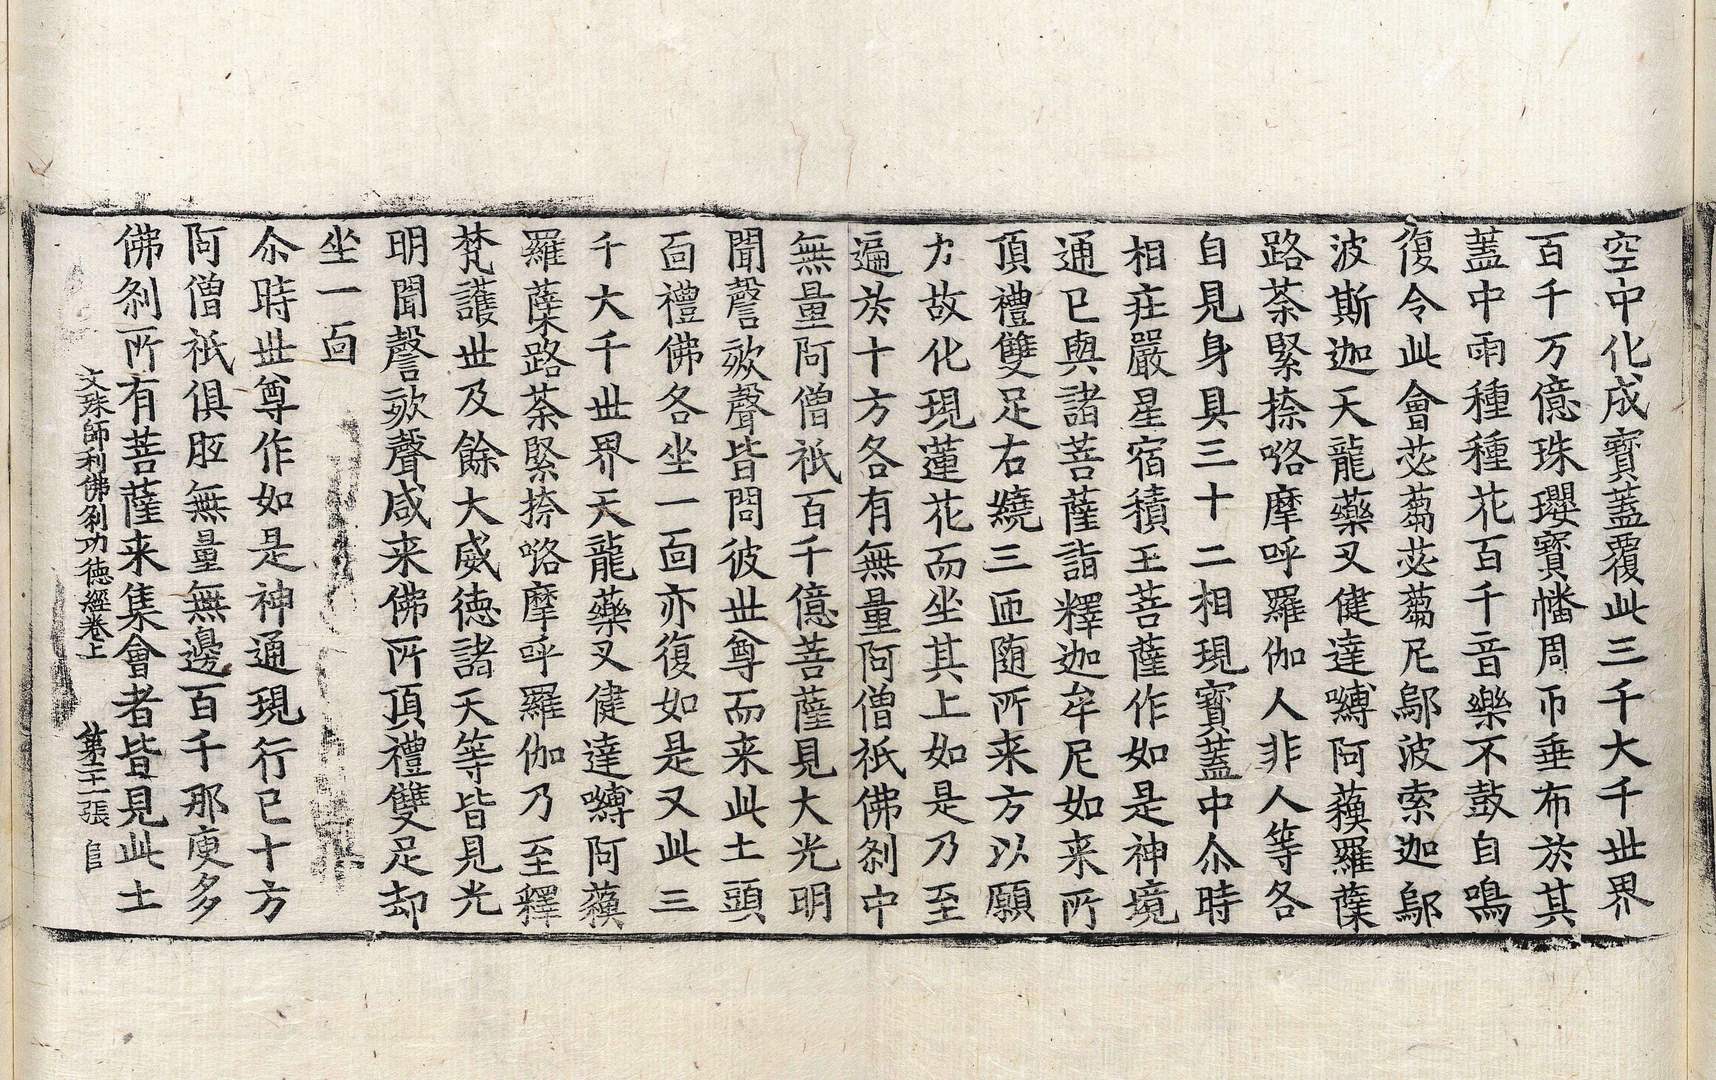 空中化成寶蓋覆此三千大千世界
百千万億珠瓔寶幡周帀垂布於其
蓋中雨種種花百千音樂不鼓自鳴
復令此會苾蒭苾蒭尼鄔波索迦鄔
波斯迦天龍藥叉健達嚩阿蘓羅蘖
路荼緊捺咯摩呼羅伽人非人等各
自見身具三十二相現寶蓋中尒時
相莊嚴星宿積王菩薩作如是神境
通已與諸菩薩詣釋迦牟尼如来所
頂禮雙足右繞三迊随所来方以願
力故化現蓮花而坐其上如是乃至
遍於十方各有無量阿僧祇佛刹中
無量阿僧祇百千億菩薩見大光明
聞謦欬聲皆問彼世尊而来此土頭
面禮佛各坐一面亦復如是又此三
千大千世界天龍藥叉健達嚩阿蘓
羅蘖路荼緊捺咯摩呼羅伽乃至釋
梵護世及餘大威德諸天等皆見光
明聞謦欬聲咸来佛所頂禮雙足却
坐一面
尒時世尊作如是神通現行已十方
阿僧祇俱胝無量無邊百千那庾多
佛刹所有菩薩来集會者皆見此土
文殊師利佛刹功德經卷上 第二十一張 官